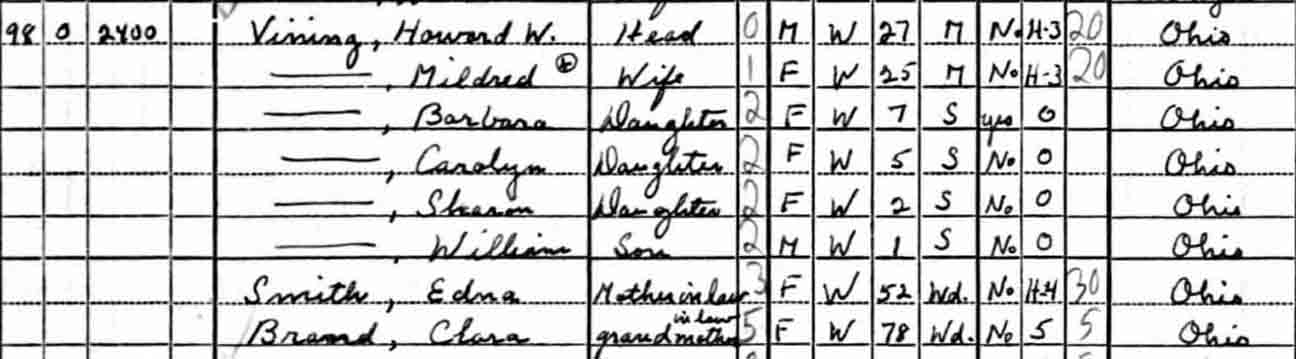 98 0 2400 Vining, Howard W. Head 0 M W 27 M No H-3 20 Ohio
——, Mildred Wife 1 F W 25 M No H-3 20 Ohio
——, Barbara Daughter 2 F W 7 S yes 0 Ohio
——, Carolyn Daughter 2 F W 5 S No 0 Ohio
——, Sharon Daughter 2 F W 2 S No 0 Ohio
——, William Son 2 M W 1 S No 0 Ohio
Smith, Edna Mother in law 3 F W 52 Wd. No H-4 30 Ohio
Brand, Clara grandmother in law 5 F W 78 Wd. No 5 5 Ohio